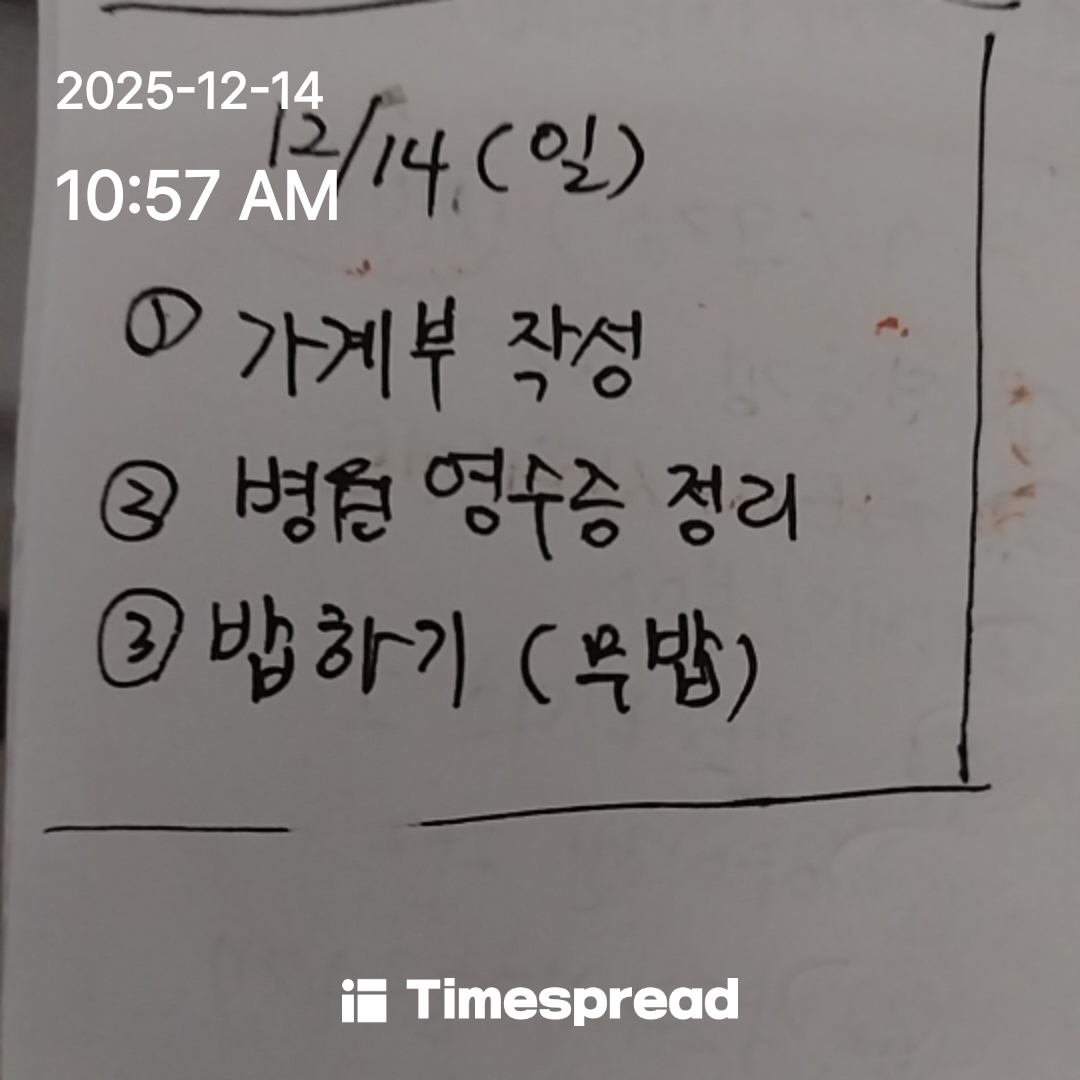 2025-12-14
12/14 (일)
10:57 AM
① 가계부 작성
② 병원 영수증 정리
③ 밥하기 (무밥)
Timespread